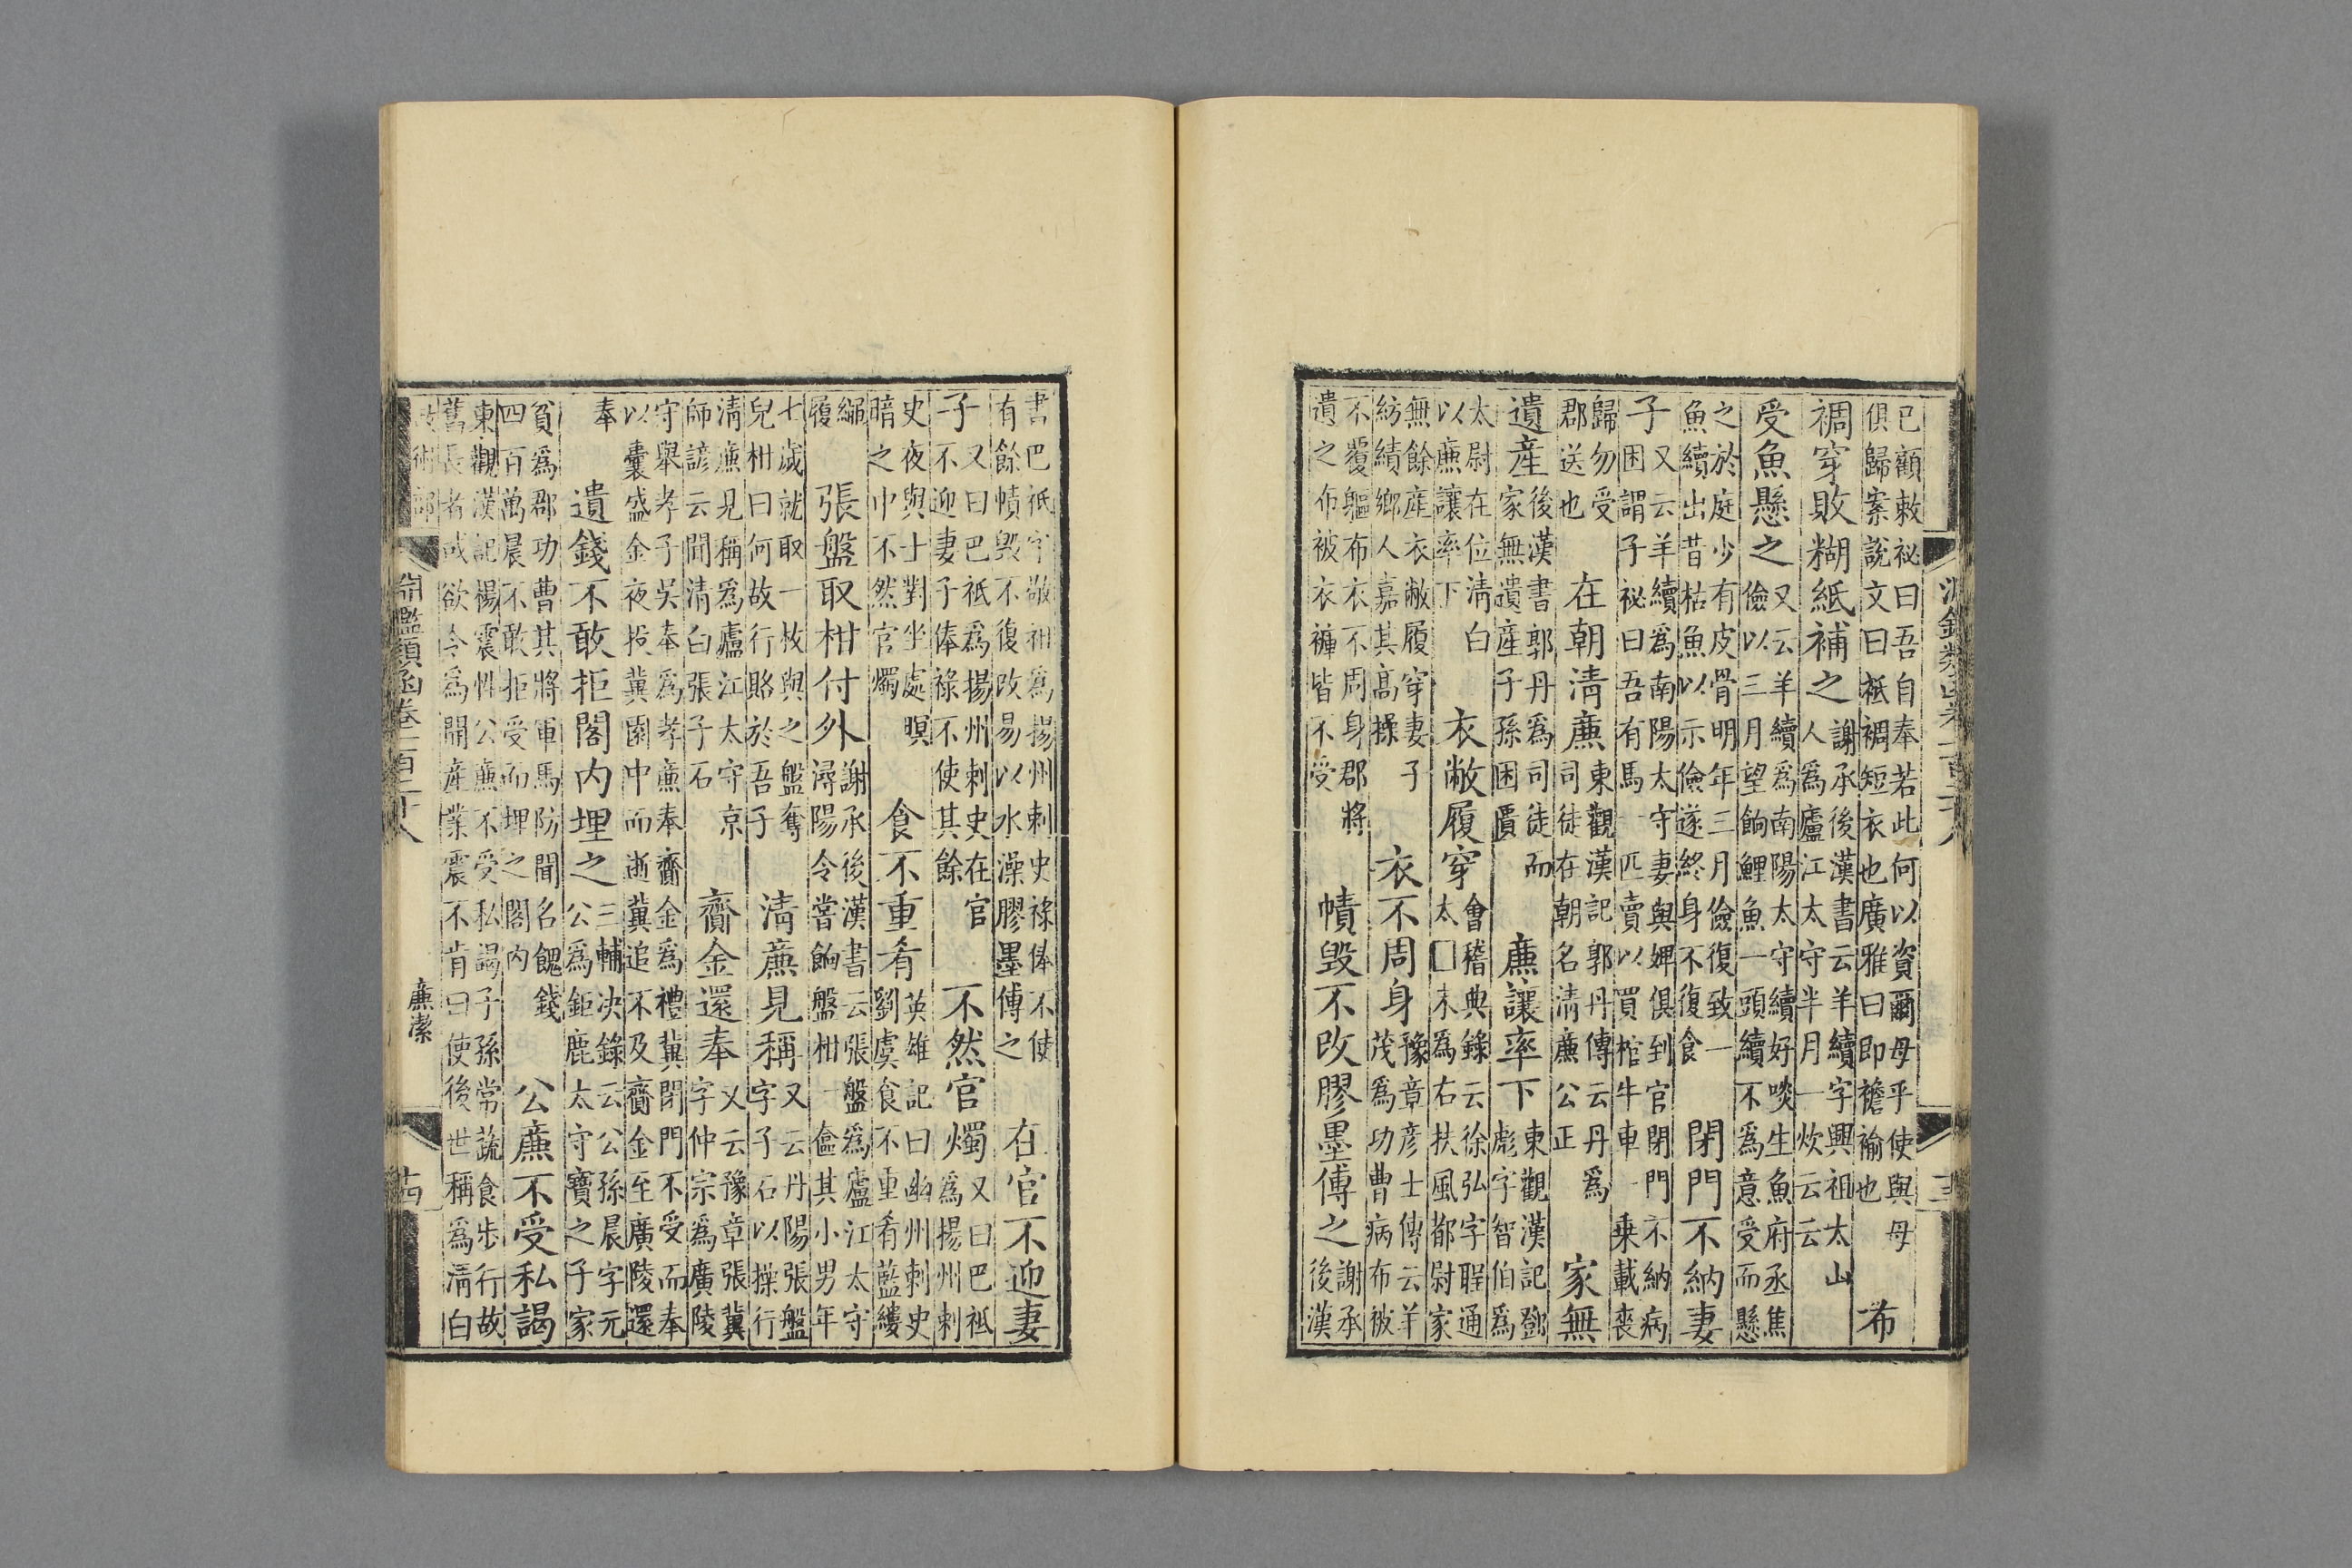 淵鑑類函卷一百三十八
十三
已顧敕祕曰吾自奉若此何以資爾母乎使與母
俱歸案說文曰袛裯短衣也廣雅曰即襜褕也
布
裯穿敗糊紙補之
謝承後漢書云羊續字興祖太山
人為廬江太守半月一炊云云
受魚懸之
又云羊續為南陽太守續好啖生魚府丞焦
儉以三月望餉鯉魚一頭續不為意受而懸
之於庭少有皮骨明年三月儉復致一
魚續出昔枯魚以示儉遂終身不復食
閉門不納妻
子
又云羊續為南陽太守妻與婢俱到官閉門不納病
困謂子祕曰吾有馬一匹賣以買棺牛車一乗載喪
歸勿受
郡送也
在朝清廉
東觀漢記郭丹傳云丹為
司徒在朝名清廉公正
家無
遺産
後漢書郭丹為司徒而
家無遺産子孫困匱
廉讓率下
東觀漢記鄧
彪字智伯為
太尉在位清白
以廉讓率下
衣敝履穿
會稽典錄云徐弘字聖通
太□末為右扶風都尉家
無餘産衣敝履穿妻子
紡績鄉人嘉其高操
衣不周身
豫章彦士傳云羊
茂為功曹病布被
不覆軀布衣不周身郡將
遺之布被衣褲皆不受
幘毀不改膠墨傅之
謝承
後漢
書巴祇字敬祖為揚州刺史祿俸不使
有餘幘毀不復改易以水澡膠墨傅之
在官不迎妻
子
又曰巴祇為揚州刺史在官
不迎妻子俸祿不使其餘
不然官燭
又曰巴祇
為揚州刺
史夜與士對坐處暝
暗之中不然官燭
食不重肴
英雄記曰幽州刺史
劉虞食不重肴藍縷
繩
履
張盤取柑付外
謝承後漢書云張盤為廬江太守
潯陽令嘗餉盤柑一奩其小男年
七歲就取一枚與之盤奪
兒柑曰何故行賂於吾子
清廉見稱
又云丹陽張盤
字子石以操行
清廉見稱為廬江太守京
師諺云聞清白張子石
齎金還奉
又云豫章張冀
字仲宗為廣陵
守舉孝子吳奉為孝廉奉齎金為禮冀閉門不受而奉
以囊盛金夜投冀園中而逝冀追不及齎金至廣陵還
奉
遺錢不敢拒閣内埋之
三輔決錄云公孫晨字元
公為鉅鹿太守竇之子家
貧為郡功曹其將軍馬防聞名餽錢
四百萬晨不敢拒受而埋之閣内
公廉不受私謁
東觀漢記楊震性公廉不受私謁子孫常蔬食步行故
舊長者或欲令為開産業震不肯曰使後世稱為清白
淵鑑類函卷一百三十八
廉潔
十四